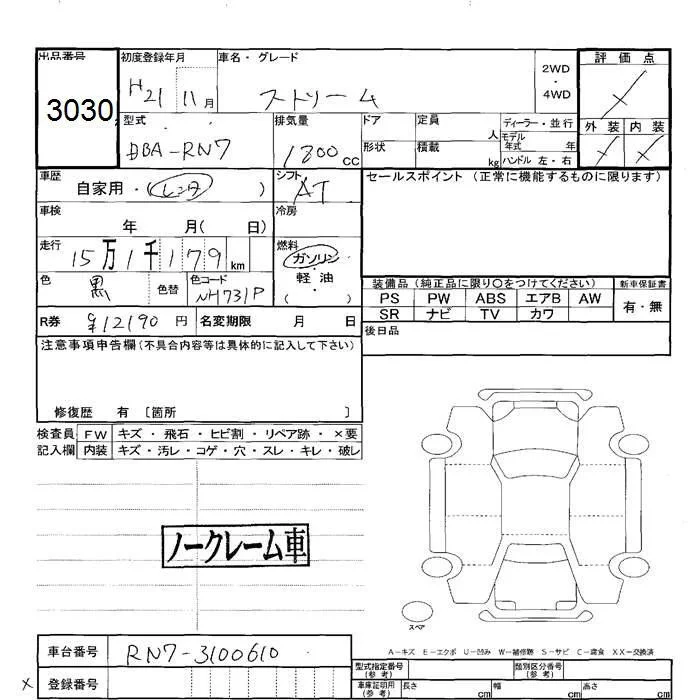 出品番号 初度登録年月 車名・グレード 2WD・4WD 評価点
3030 H21 11月 ストリーム
型式 排気量 ドア 定員 人 ディーラー・並行 外装 内装
DBA-RN7 1800cc 形状 積載 kg モデル年式 年
ハンドル 左・右
車歴 自家用・(レンタ) シフト AT セールスポイント (正常に機能するものに限ります)
車検 年 月( 日) 冷房
走行 15万1千179km 燃料 ガソリン・軽油・( )
色 黒 色替 色コード NH731P
装備品 (純正品に限り〇をつけてください) 新車保証書
PS PW ABS エアB AW 有・無
SR ナビ TV カワ
R券 ¥12190円 名変期限 月 日
後日品
注意事項申告欄(不具合内容等は具体的に記入して下さい)
修復歴 有 [箇所 ]
検査員 FW キズ・飛石・ヒビ割・リペア跡・×要
記入欄 内装 キズ・汚レ・コゲ・穴・スレ・キレ・破レ
ノークレーム車
スペア
A-キズ E-エクボ U-凹み W-補修跡 S-サビ C-腐食 XX-交換済
車台番号 RN7-3100610
型式指定番号(参考) 類別区分番号(参考)
× 登録番号
車庫証明用(参考) 長さ cm 幅 cm 高さ cm